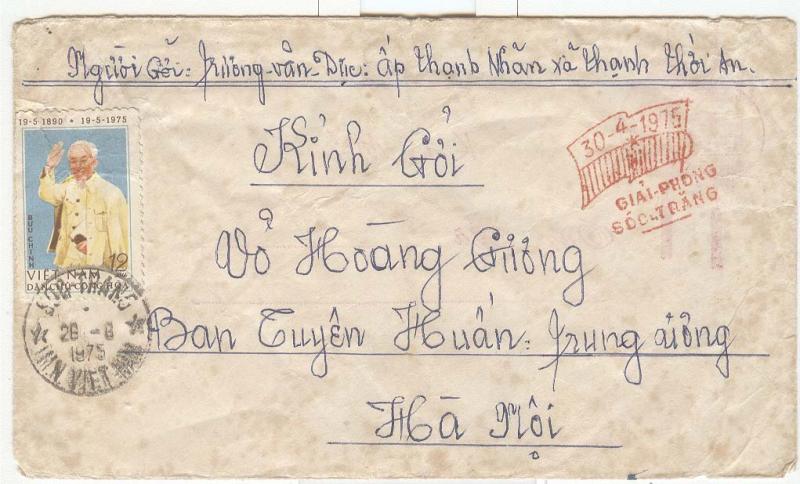 Người Gởi: Trương-văn-Dục: ấp thạnh Nhãn xã thạnh thới An.
19-5-1890 * 19-5-1975
BƯU CHÍNH
12
VIỆT NAM
DÂN CHỦ CỘNG HÒA
30-4-1975
GIẢI-PHÓNG
SÓC-TRĂNG
Kỉnh Gởi
Vỏ Hoàng Gương
Ban Tuyên Huấn: trung ương
Hà Nội
SOC TRANG
28 - 8
1975
VIET NAM